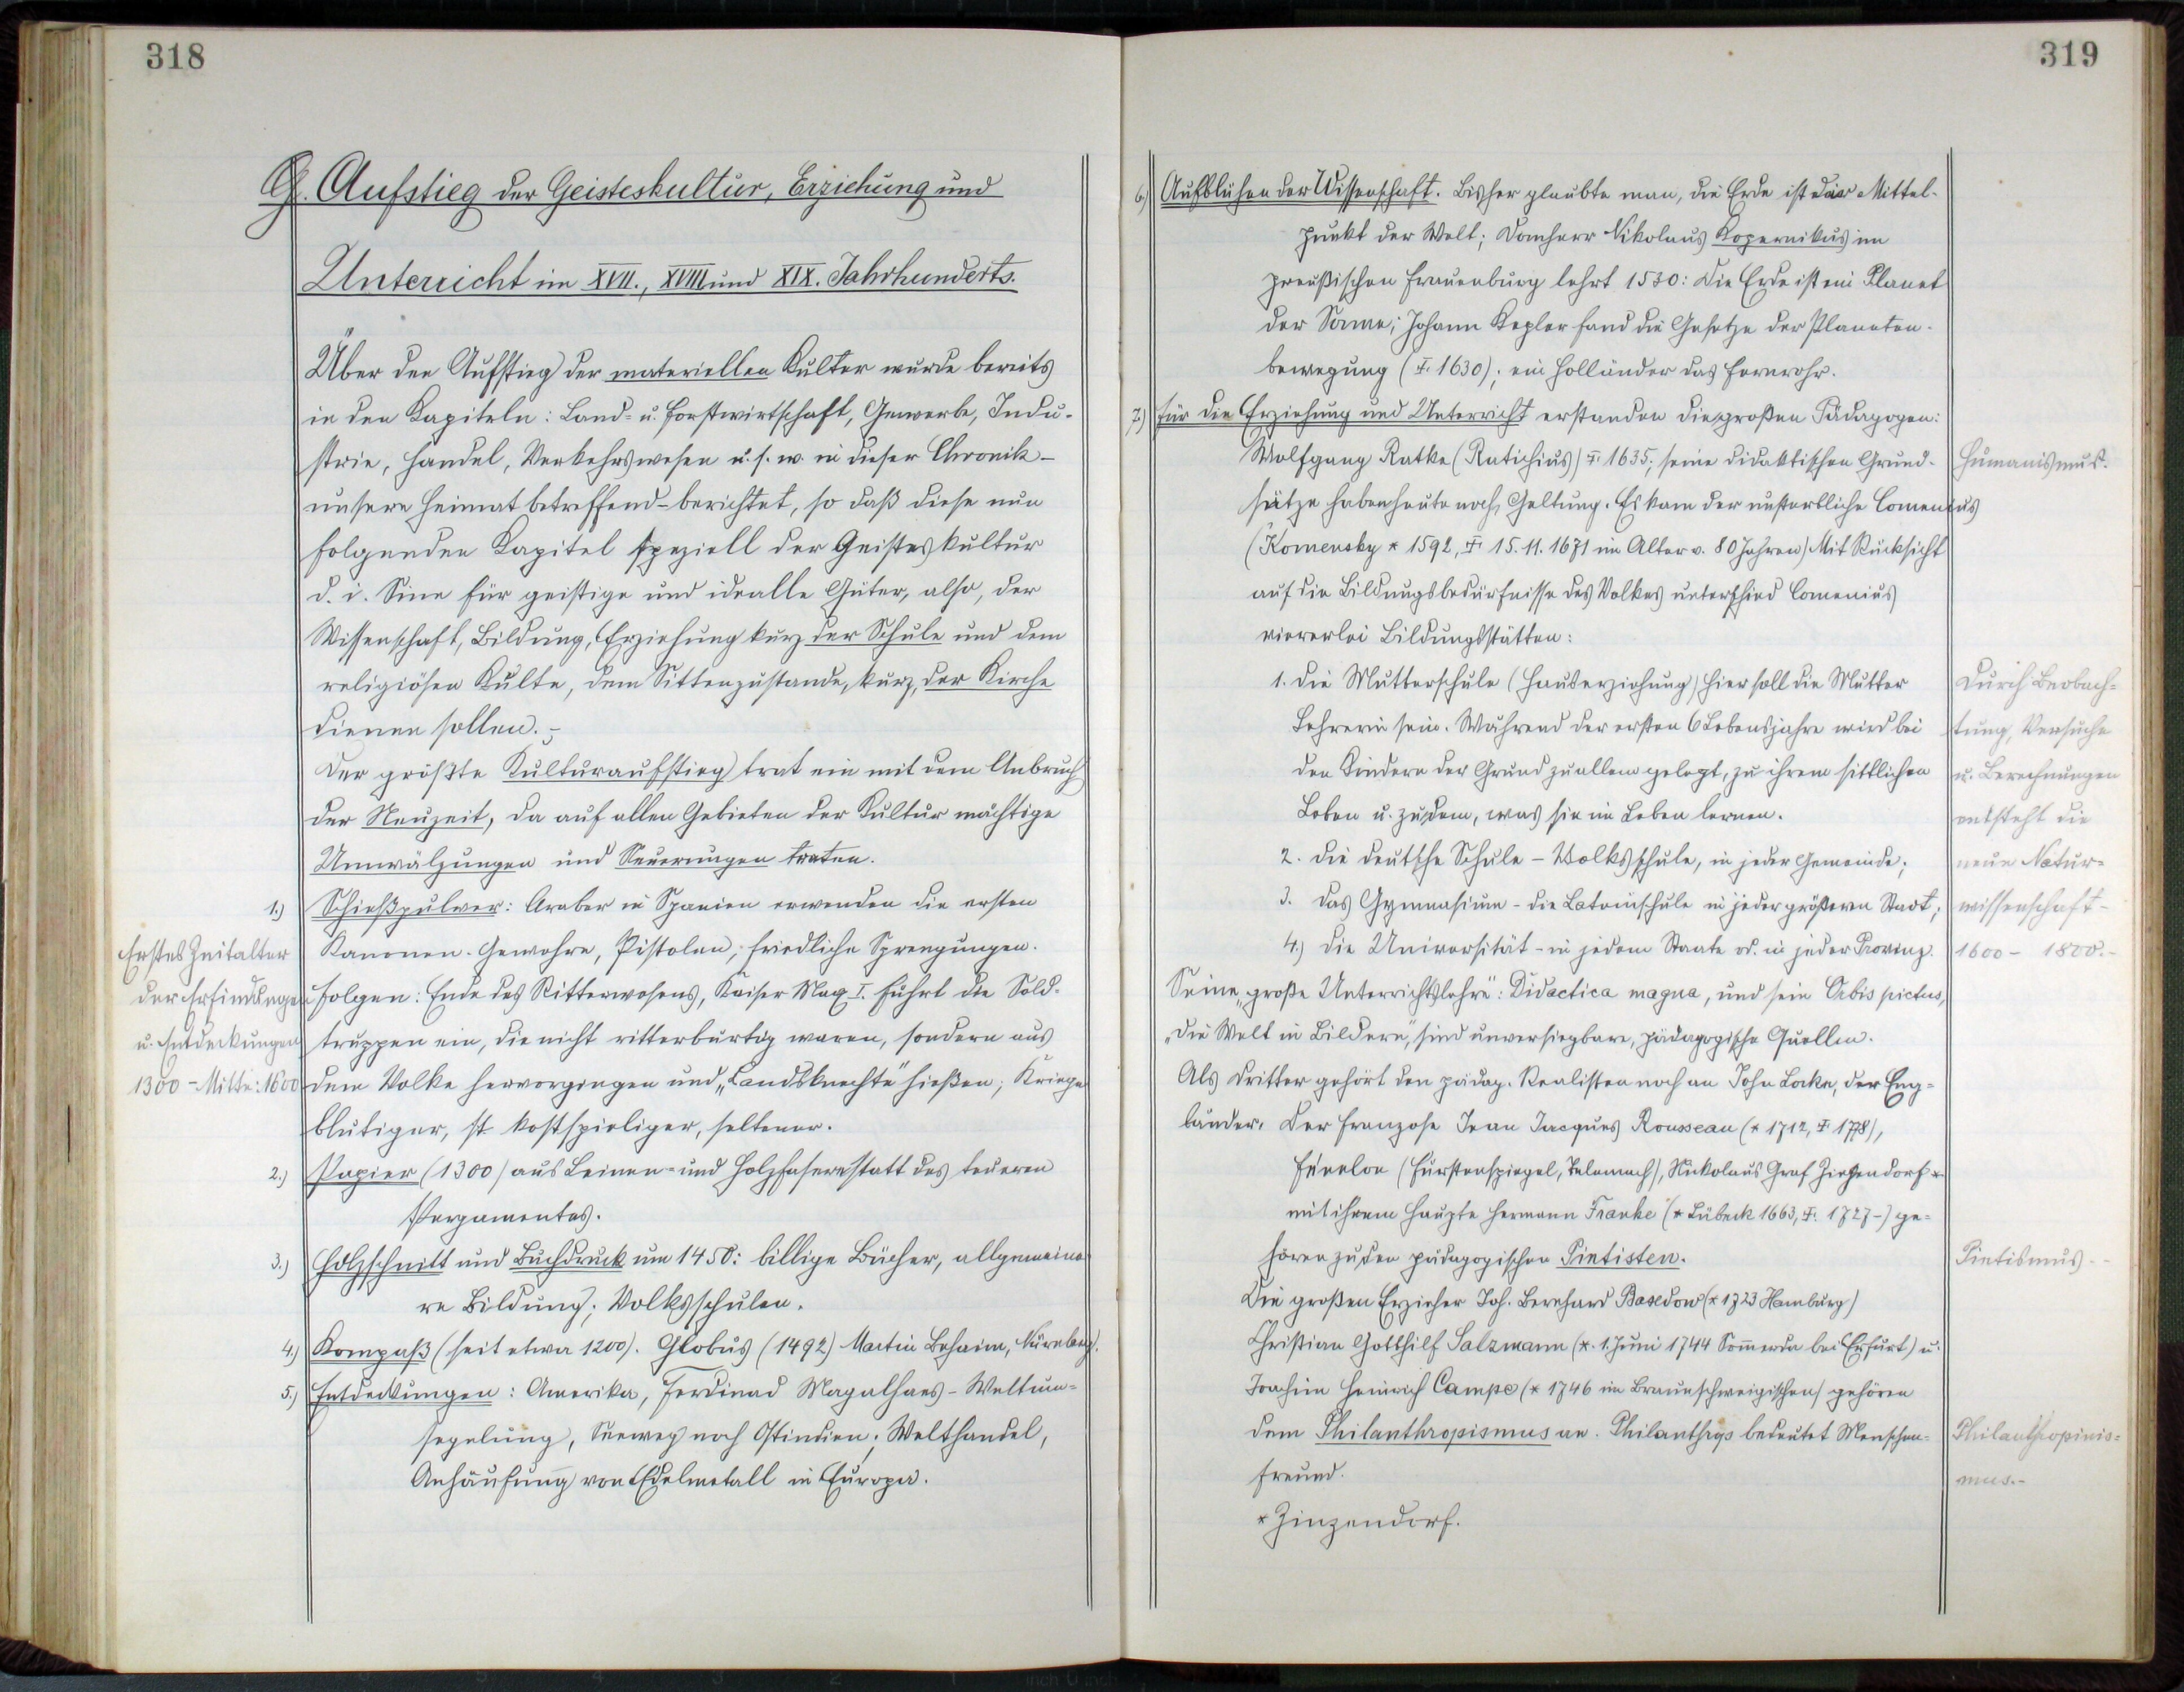 318
G. Aufstieg der Geisteskultur, Erziehung und
Unterricht im XVII., XVIII und XIX. Jahrhunderts.
Über den Aufstieg der materiellen Kultur wurde bereits
in den Kapiteln: Land- u. Forstwirtschaft, Gewerbe, Indu-
strie, Handel, Verkehrswesen u. s. w. in dieser Chronik -
unsere Heimat betreffend - berichtet, so daß diese nun
folgenden Kapitel speziell der Geisteskultur
d. i. Sinn für geistige und idealle Güter, also, der
Wissenschaft, Bildung, Erziehung kurz der Schule und dem
religiösen Kulte, dem Sittenzustande, kurz, der Kirche
dienen sollen. -
Der größte Kulturaufstieg trat ein mit dem Anbruch
der Neuzeit, da auf allen Gebieten der Kultur mächtige
Umwälzungen und Neuerungen traten.
1.) Schießpulver: Araber in Spanien erwenden die ersten
Kanonen. Gewehre, Pistolen, friedliche Sprengungen.
Folgen: Ende des Ritterwesens, Kaiser Max I. führt die Sold-
truppen ein, die nicht ritterbürtig waren, sondern aus
dem Volke hervorgingen und „Landsknechte" hießen; Kriege
blutiger, st kostspieliger, seltener.
Erstes Zeitalter
der Erfindungen
u. Entdeckungen
1300 - Mitte: 1600
2.) Papier (1300) aus Leinen- und Holzfasern statt des teueren
Pergamentes.
3.) Holzschnitt und Buchdruck um 1450: billige Bücher, allgemeine
re Bildung; Volksschulen.
4.) Kompaß (seit etwa 1200). Globus (1492) Martin Behaim, Nürnberg.
5.) Entdeckungen: Amerika, Ferdinad Magalhaes - Weltum-
segelung, Seeweg nach Ostindien; Welthandel,
Anhäufung von Edelmetall in Europa.
319
6.) Aufblühen der Wissenschaft. Bisher glaubte man, die Erde ist der Mittel-
punkt der Welt; Domherr Nikolaus Kopernikus im
preußischen Frauenburg lehrt 1530: Die Erde ist ein Planet
der Sonne; Johann Kepler fand die Gesetze der Planeten-
bewegung († 1630); ein Holländer das Fernrohr.
7.) Für die Erziehung und Unterricht erstanden die großen Pädagogen:
Wolfgang Ratke (Ratichius) † 1635; seine didaktischen Grund-
sätze haben heute noch Geltung. Es kam der unsterbliche Comenius
(Komensky * 1592, † 15. 11. 1671 im Alter v. 80 Jahren) Mit Rücksicht
auf die Bildungsbedürfnisse des Volkes unterschied Comenius
viererlei Bildungsstätten:
1. Die Mutterschule (Hauserziehung) Hier soll die Mutter
Lehrerin sein. Während der ersten 6 Lebensjahre wird bei
den Kindern der Grund zu allem gelegt, zu ihrem sittlichen
Leben u. zu dem, was sie im Leben lernen.
2. Die deutsche Schule - Volksschule, in jeder Gemeinde;
3. Das Gymnasium - die Lateinschule in jeder größeren Stadt;
4.) Die Universität - in jedem Staate od. in jeder Provinz.
Seine „große Unterrichtslehre": Didactica magna, und sein Orbis pictus,
„die Welt in Bildern", sind unversiegbare, pädagogische Quellen.
Als Dritter gehört den pädag. Realisten noch an John Locke, der Eng-
länder. Der Franzose Jean Jacques Rousseau (* 1712, † 1778),
Fénelon (Fürstenspiegel, Telemach), Nickolaus Graf Ziegendorf *
mit ihrem Haupte Hermann Franke (* Lübeck 1663, † 1727 -) ge-
hören zu den pädagogischen Pietisten.
Die großen Erzieher Joh. Bernhard Basedow (* 1723 Hamburg)
Christian Gotthilf Salzmann (* 1. Juni 1744 Sommerda bei Erfurt) u.
Joachim Heinrich Campe (* 1746 im Braunschweigischen) gehören
dem Philanthropismus an. Philanthrop bedeutet Menschen-
freund.
* Zinzendorf.
Humanismus.
Durch Beobach-
tung, Versuche
u. Berechnungen
entsteht die
neue Natur-
wissenschaft -
1600 - 1800. -
Pietismus. -
Philanthropinis-
mus. -